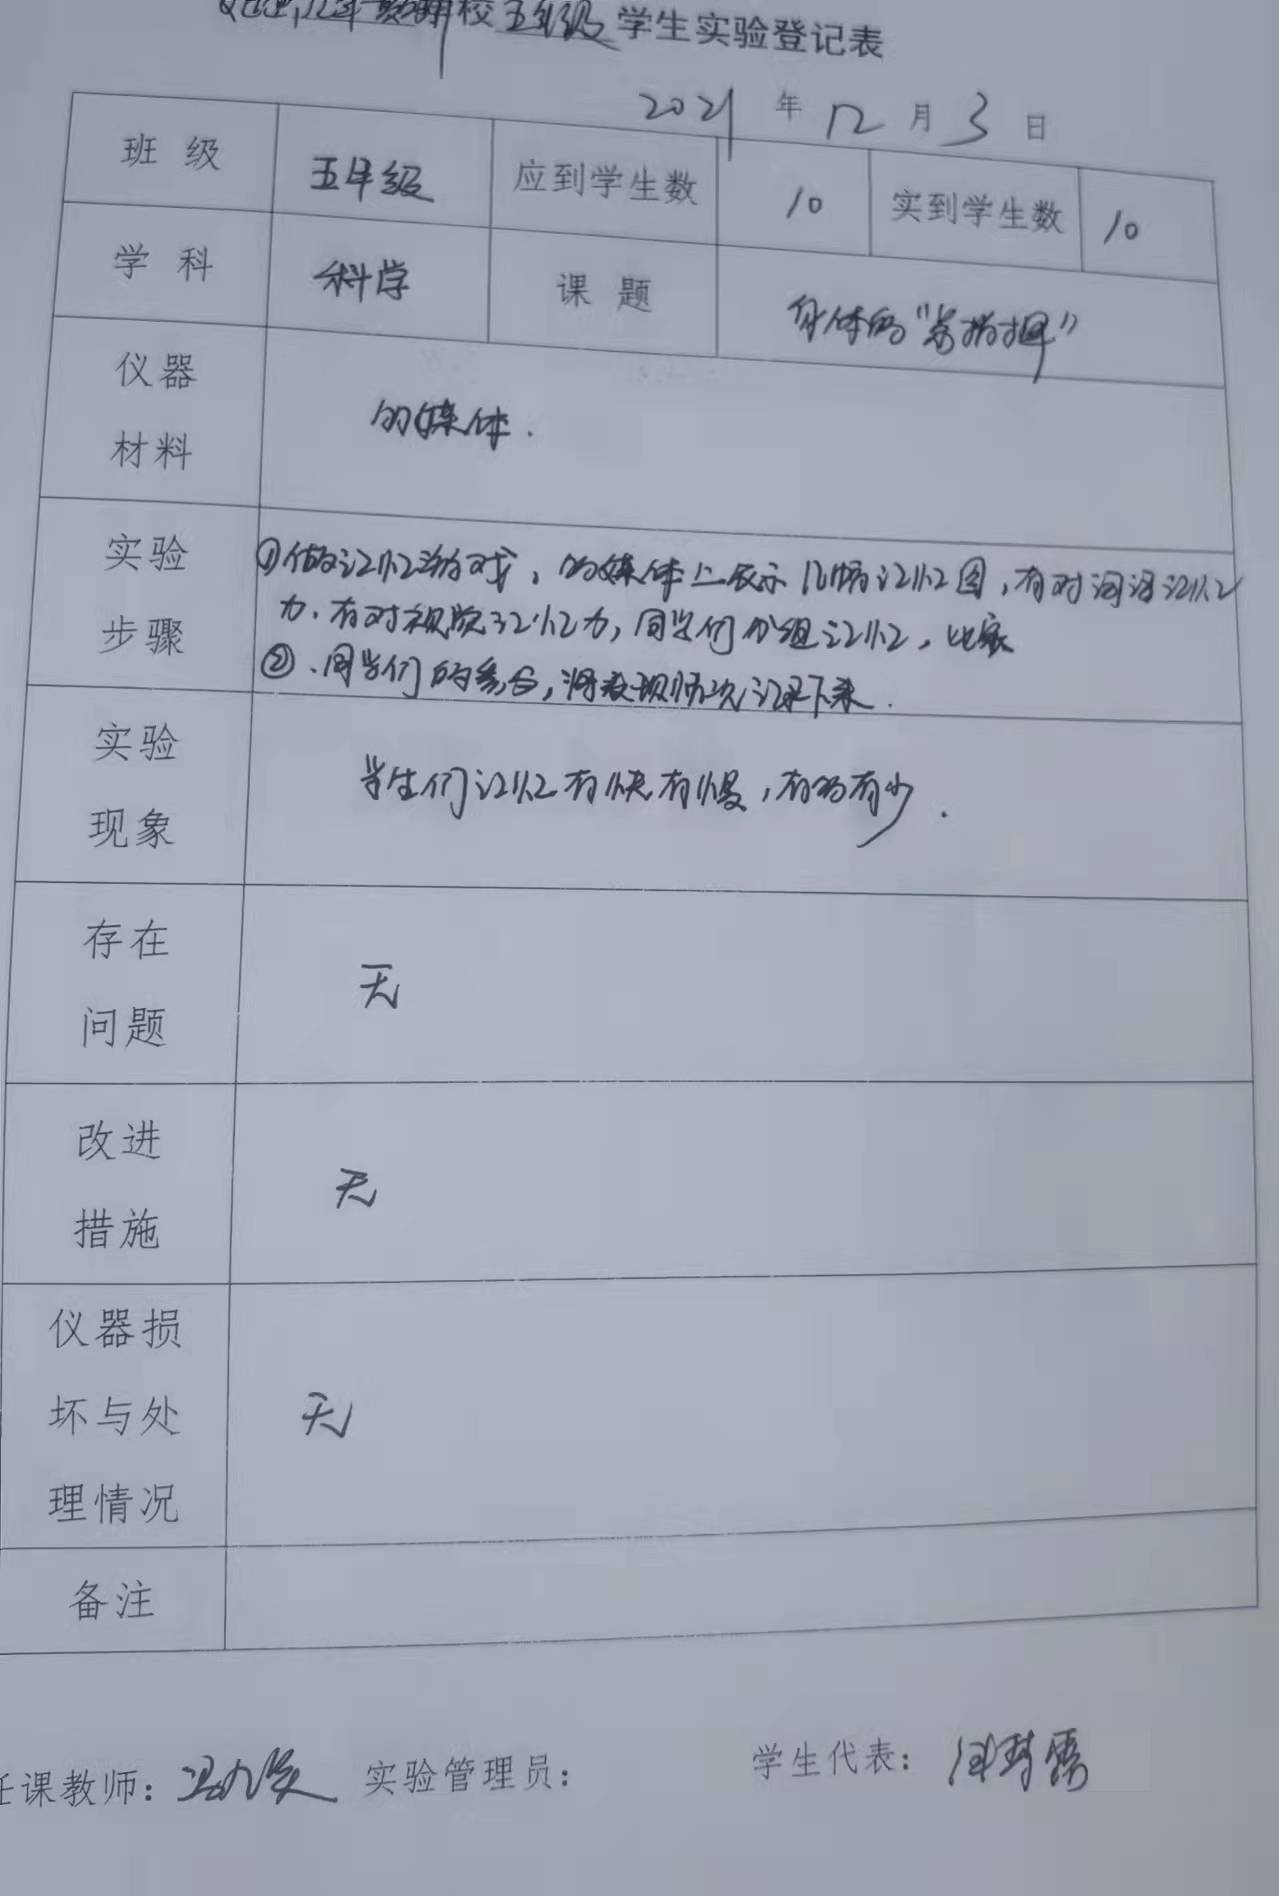 校五年级学生实验登记表
2021年12月3日
班级 五年级 应到学生数 10 实到学生数 10
学科 科学 课题 身体的“总指挥”
仪器
材料
多媒体.
实验
步骤
①做记忆游戏，多媒体上展示几幅记忆图，有对词语记忆
力.有对视觉记忆力，同学们分组记忆，比赛
②.同学们的参与，将表现情况记录下来.
实验
现象
学生们记忆有快有慢，有多有少.
存在
问题
无
改进
措施
无
仪器损
坏与处
理情况
无
备注
任课教师: 实验管理员: 学生代表: